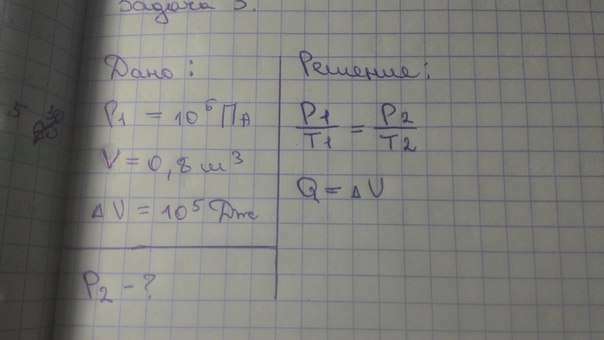 Задача 3.
Дано:
P1 = 10^6 Па
V = 0,8 м^3
ΔV = 10^5 Дж
P2 - ?
Решение:
P1/T1 = P2/T2
Q = ΔV
5